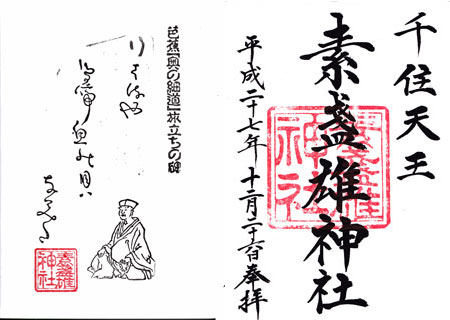 千住天王
素盞雄神社
平成二十七年 十二月二十六日 奉拝
素盞雄
神社
芭蕉「奥の細道」旅立ちの碑
行はるや
鳥啼魚の目ハ
なみだ
素盞雄
神社